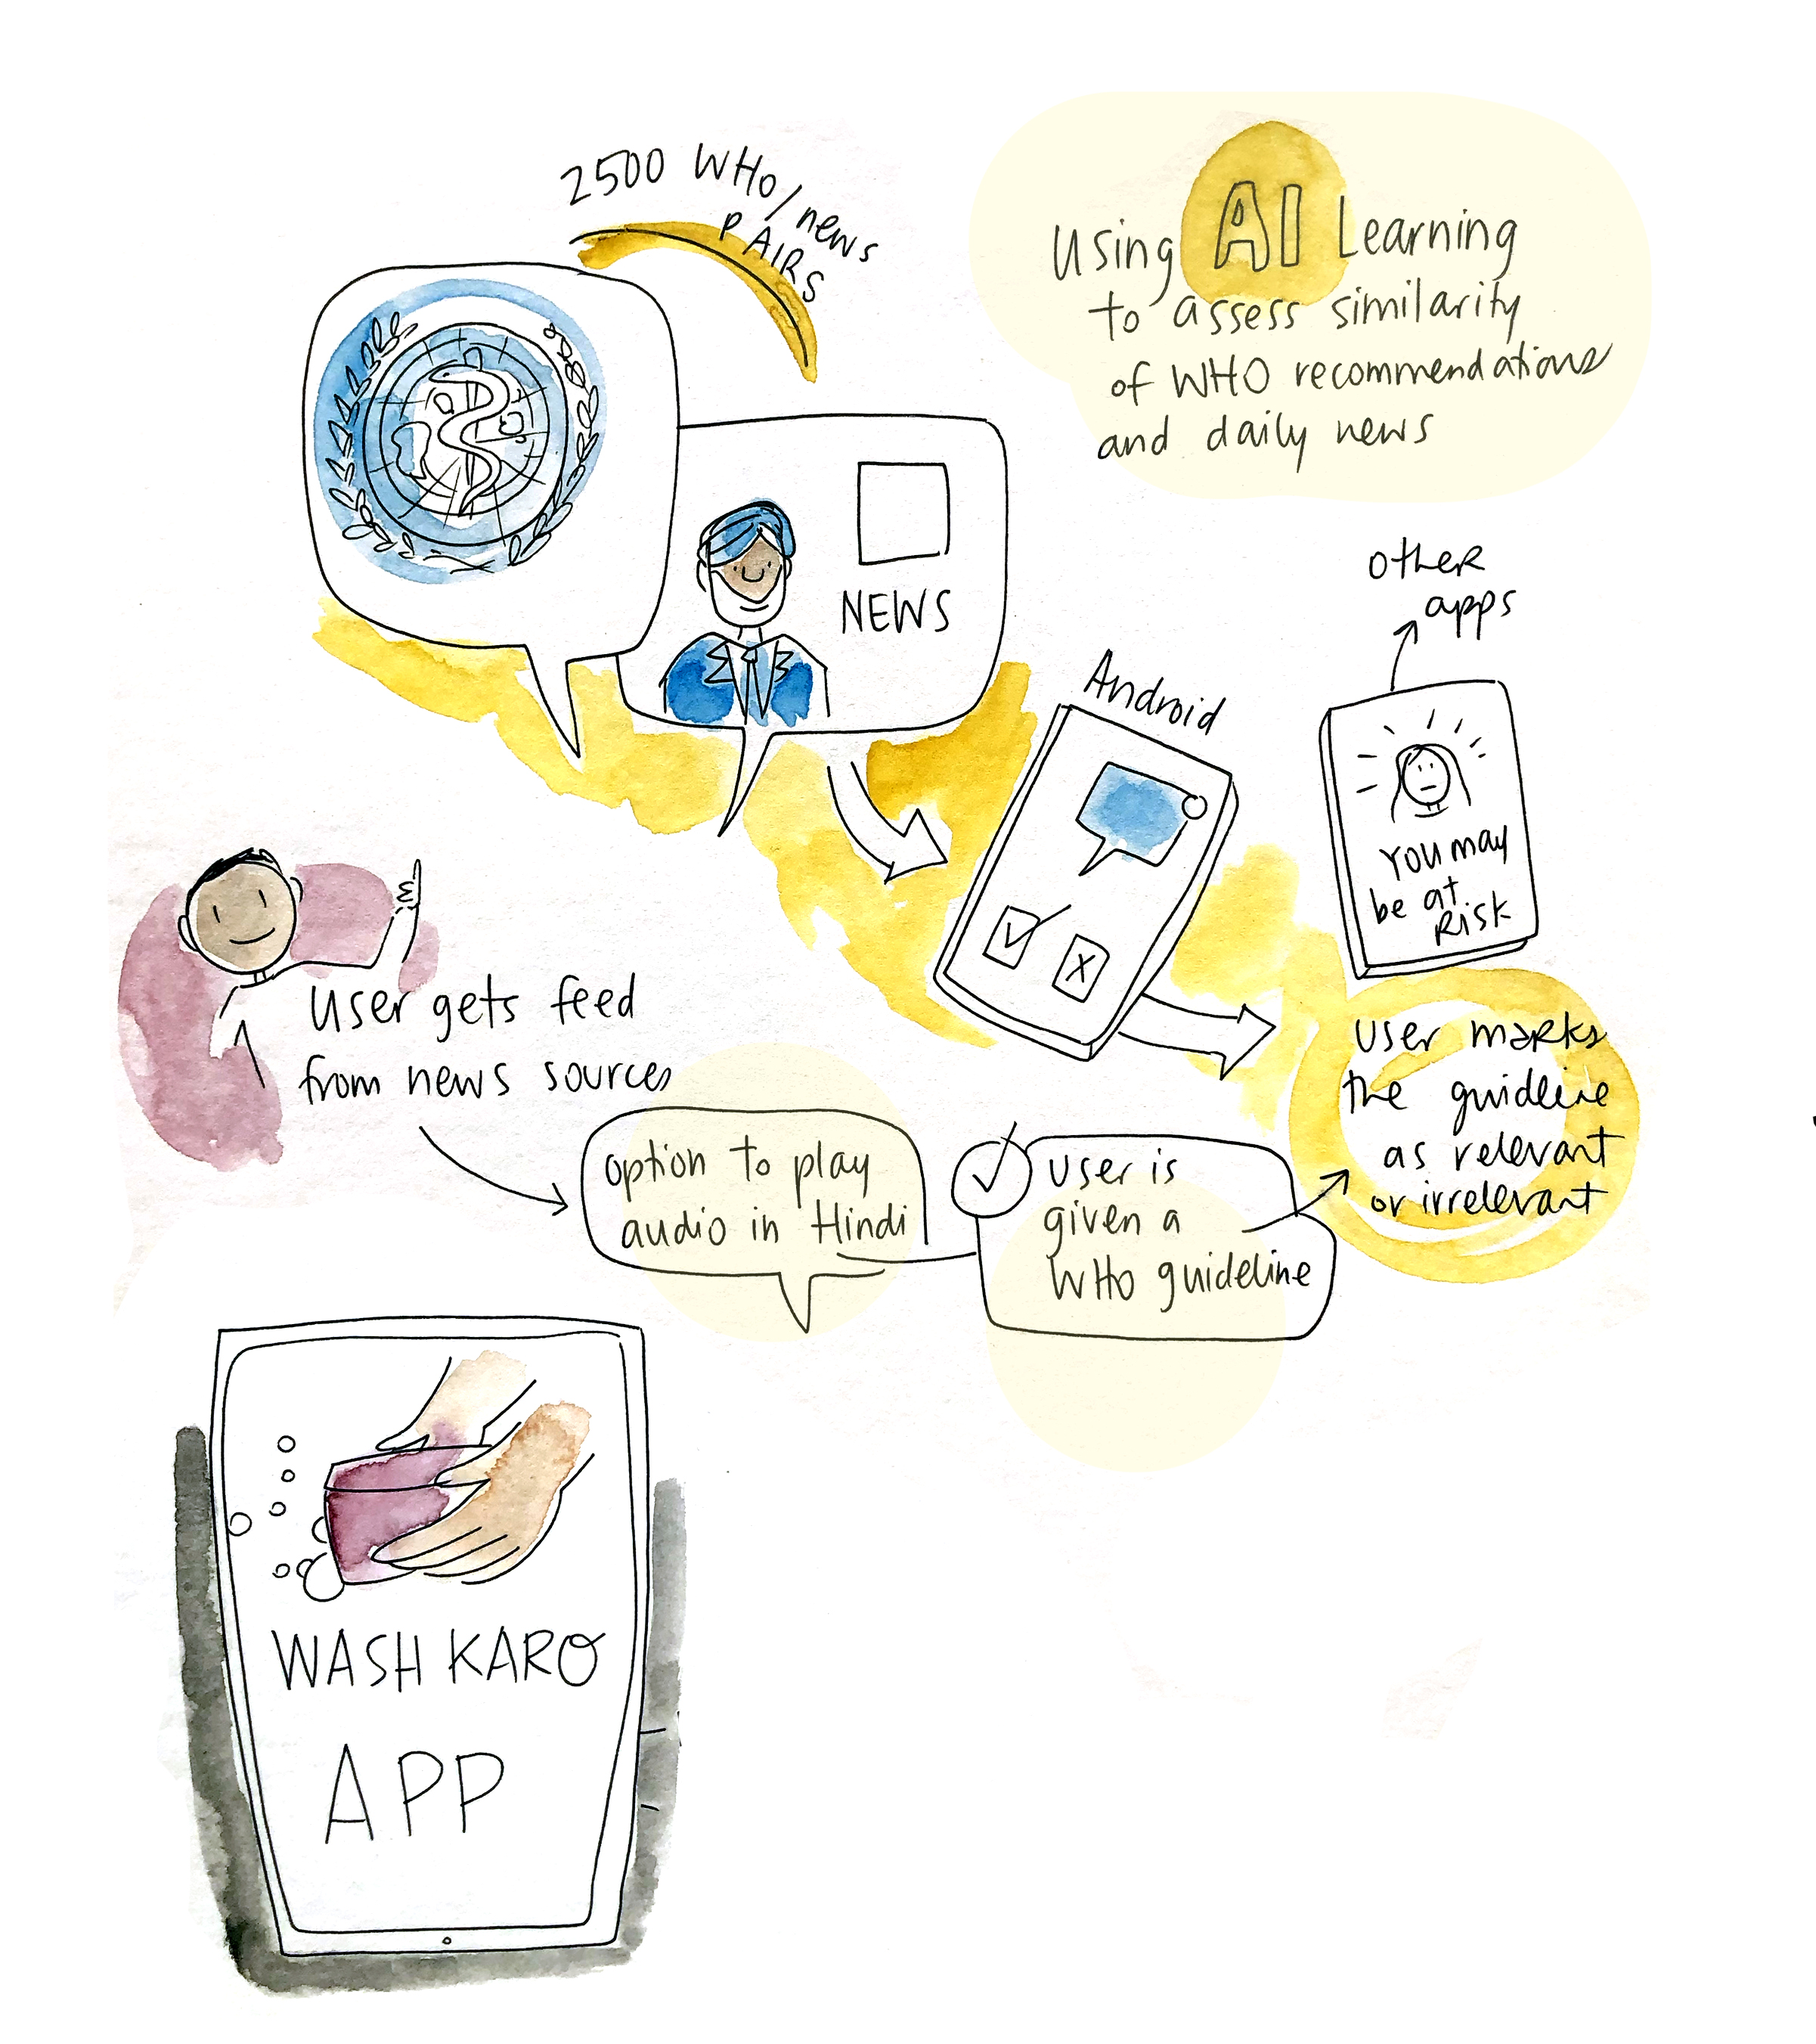 2500 WHO/news
PAIRS
Using AI Learning
to assess similarity
of WHO recommendations
and daily news
NEWS
other
apps
Android
You may
be at
Risk
User gets feed
from news sources
User marks
the guideline
as relevant
or irrelevant
option to play
audio in Hindi
User is
given a
WHO guideline
WASH KARO
APP